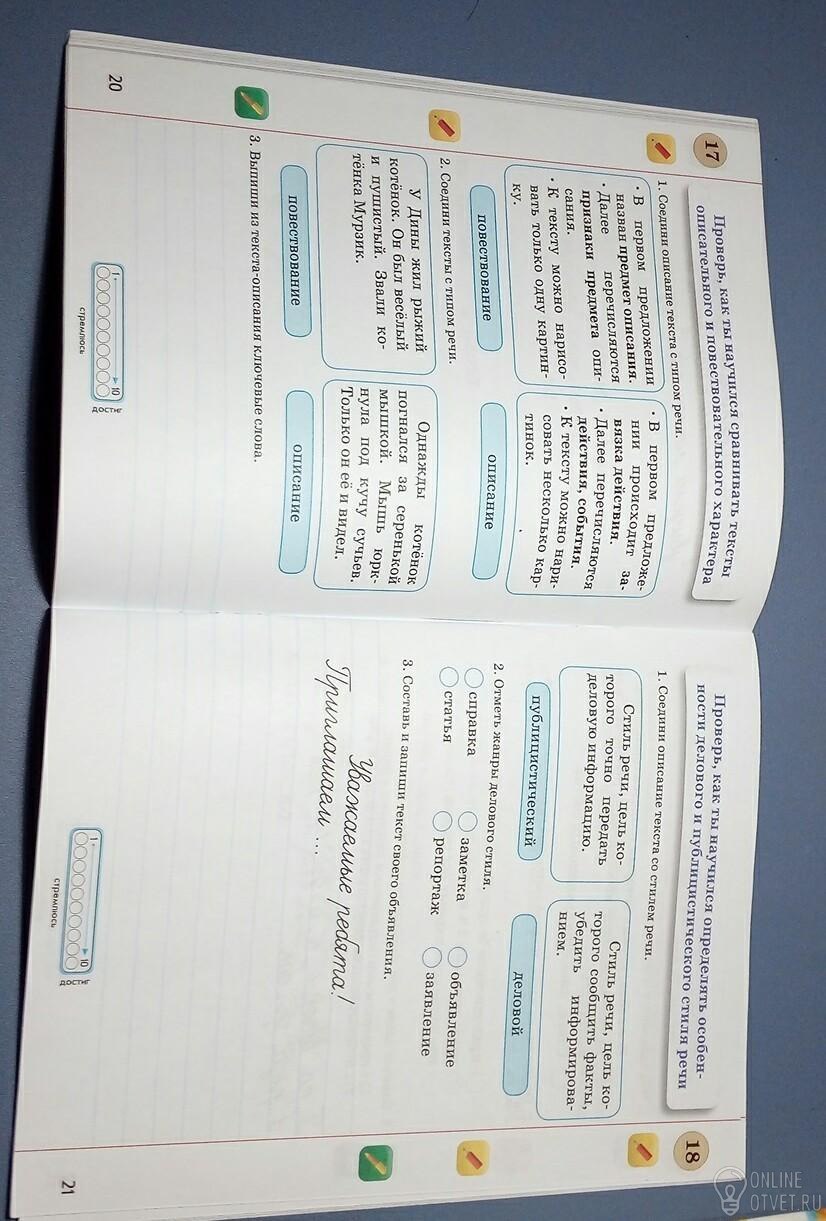 17
Проверь, как ты научился сравнивать тексты
описательного и повествовательного характера
1. Соедини описание текста с типом речи.
• В первом предложении
назван предмет описания.
• Далее перечисляются
признаки предмета опи-
сания.
• К тексту можно нарисо-
вать только одну картин-
ку.
• В первом предложе-
нии происходит за-
вязка действия.
• Далее перечисляются
действия, события.
• К тексту можно нари-
совать несколько кар-
тинок.
повествование
описание
2. Соедини тексты с типом речи.
У Дины жил рыжий
котёнок. Он был весёлый
и пушистый. Звали ко-
тёнка Мурзик.
Однажды котёнок
погнался за серенькой
мышкой. Мышь юрк-
нула под кучу сучьев.
Только он её и видел.
повествование
описание
3. Выпиши из текста-описания ключевые слова.
1
10
стремлюсь
достиг
20
18
Проверь, как ты научился определять особен-
ности делового и публицистического стиля речи
1. Соедини описание текста со стилем речи.
Стиль речи, цель ко-
торого точно передать
деловую информацию.
Стиль речи, цель ко-
торого сообщить факты,
убедить информирова-
нием.
публицистический
деловой
2. Отметь жанры делового стиля.
справка заметка объявление
статья репортаж заявление
3. Составь и запиши текст своего объявления.
Уважаемые ребята!
Приглашаем ...
1
10
стремлюсь
достиг
21
ONLINE
OTVET.RU